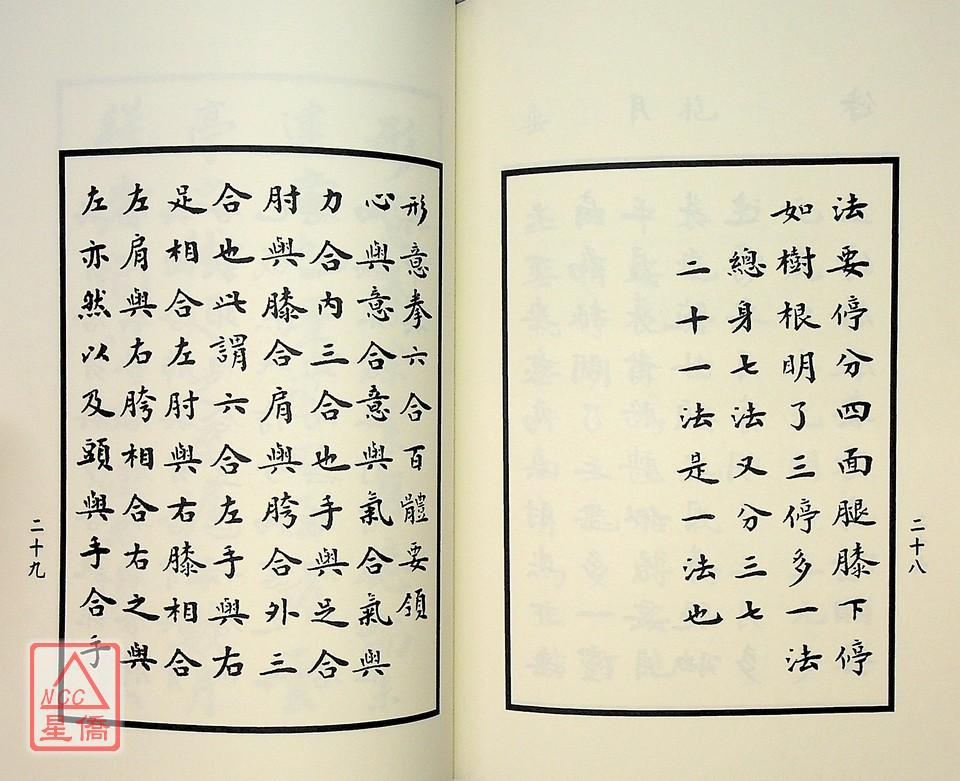 法要停分四面腿膝下停
如樹根明了三停多一法
總身七法又分三七
二十一法是一法也
二十八
形意拳六合百體要領
心與意合意與氣合氣與
力合內三合也手與足合
肘與膝合肩與胯合外三
合也此謂六合左手與右
足相合左肘與右膝相合
左肩與右胯相合右之與
左亦然以及頭與手合手
二十九
NCC
星僑